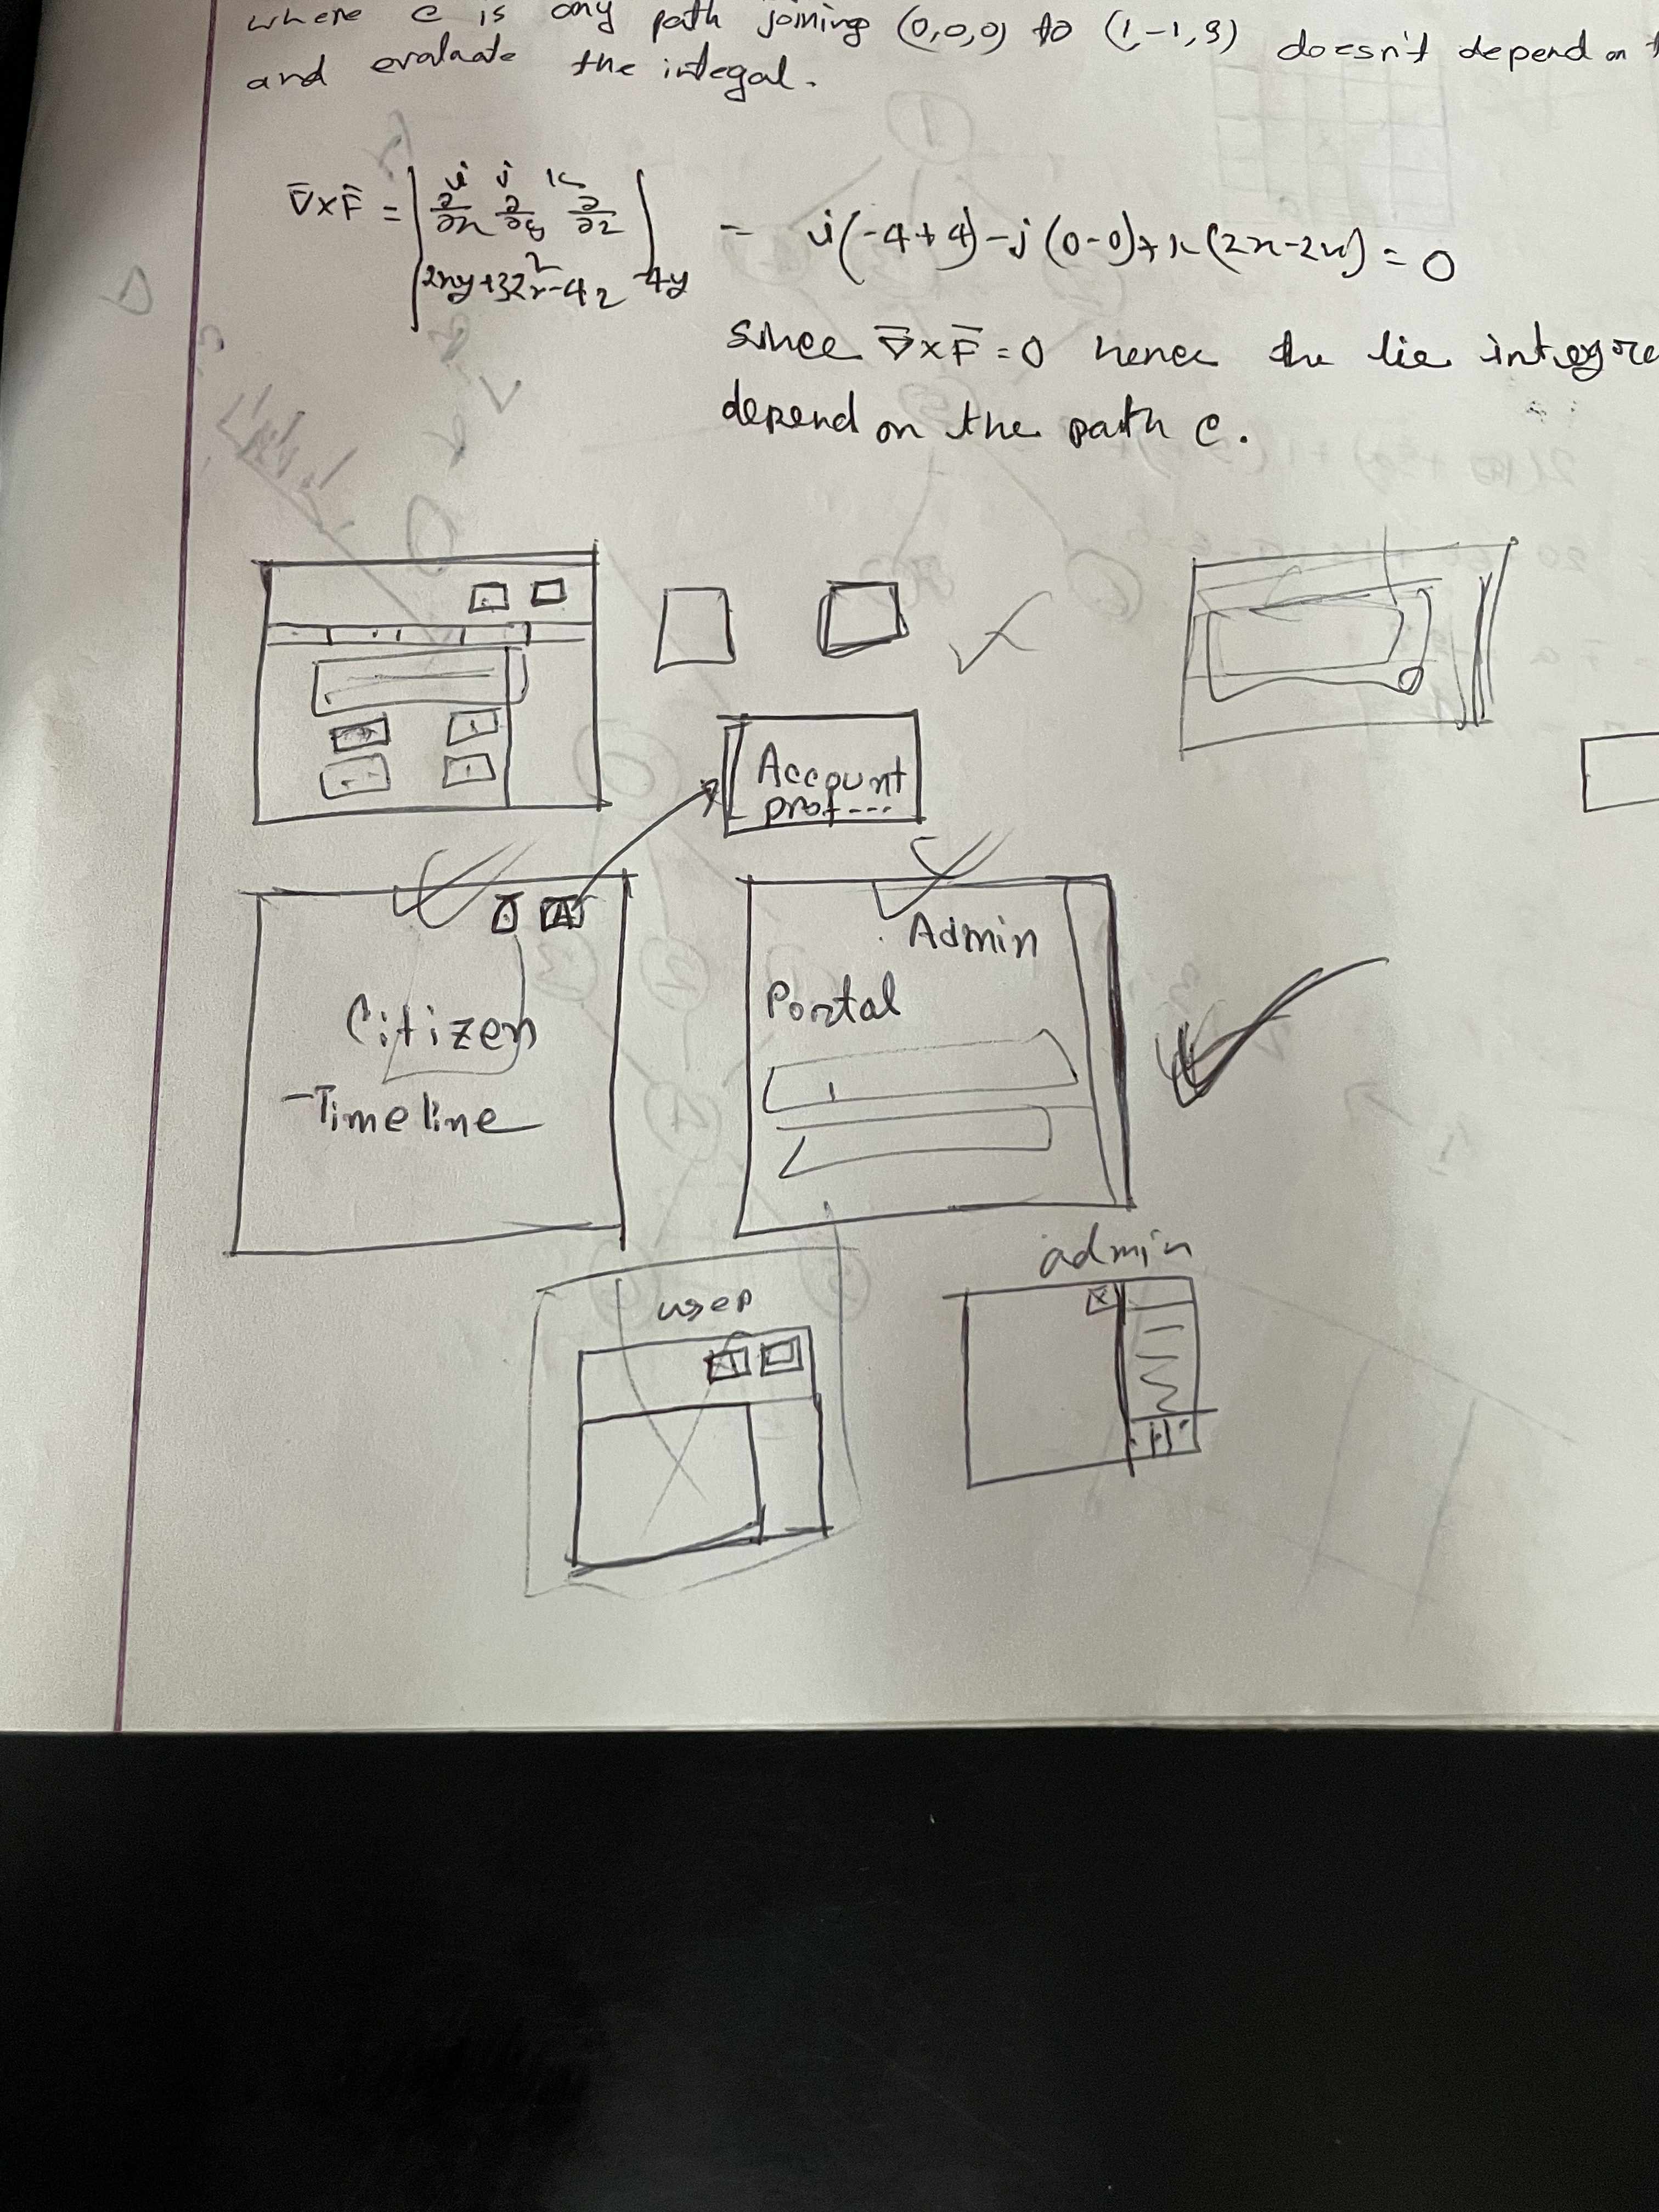 where c is any path joining (0,0,0) to (1,-1,3) doesn't depend on
and evaluate the integal.
∇×F = | i j k
∂/∂x ∂/∂y ∂/∂z
2xy+3 x²-4z -4y | = i(-4+4)-j(0-0)+k(2x-2x)=0
since ∇×F=0 hence the lie
depend on the path c.
Account
prof---
A
Citizen
Timeline
Admin
Portal
user
admin